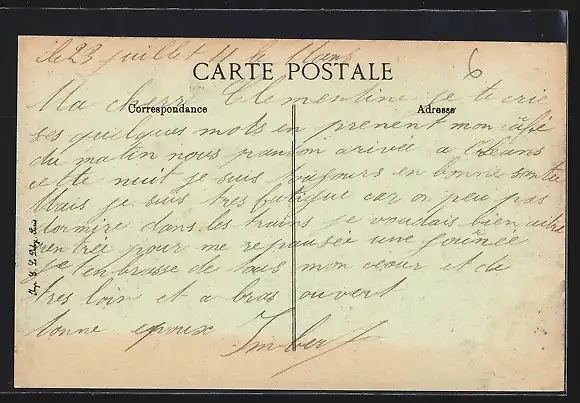 le 23 juillet 11 le Mans
CARTE POSTALE
6
Ma chere Clementine je te cris
Correspondance
Adresse
ses quelques mots en prenent mon café
du matin nous pandon arivée a Orleans
cette nuit je suis toujours en bonne santée
Mais je suis tres fatigue car on peu pas
dormire dans les trains je voudais bien aitre
rentrée pour me repausée une journée
je t'enbrasse de tous mon cœur et de
tres loin et a bras ouvert
tonne epoux Imbert
Imp. E. L. D.